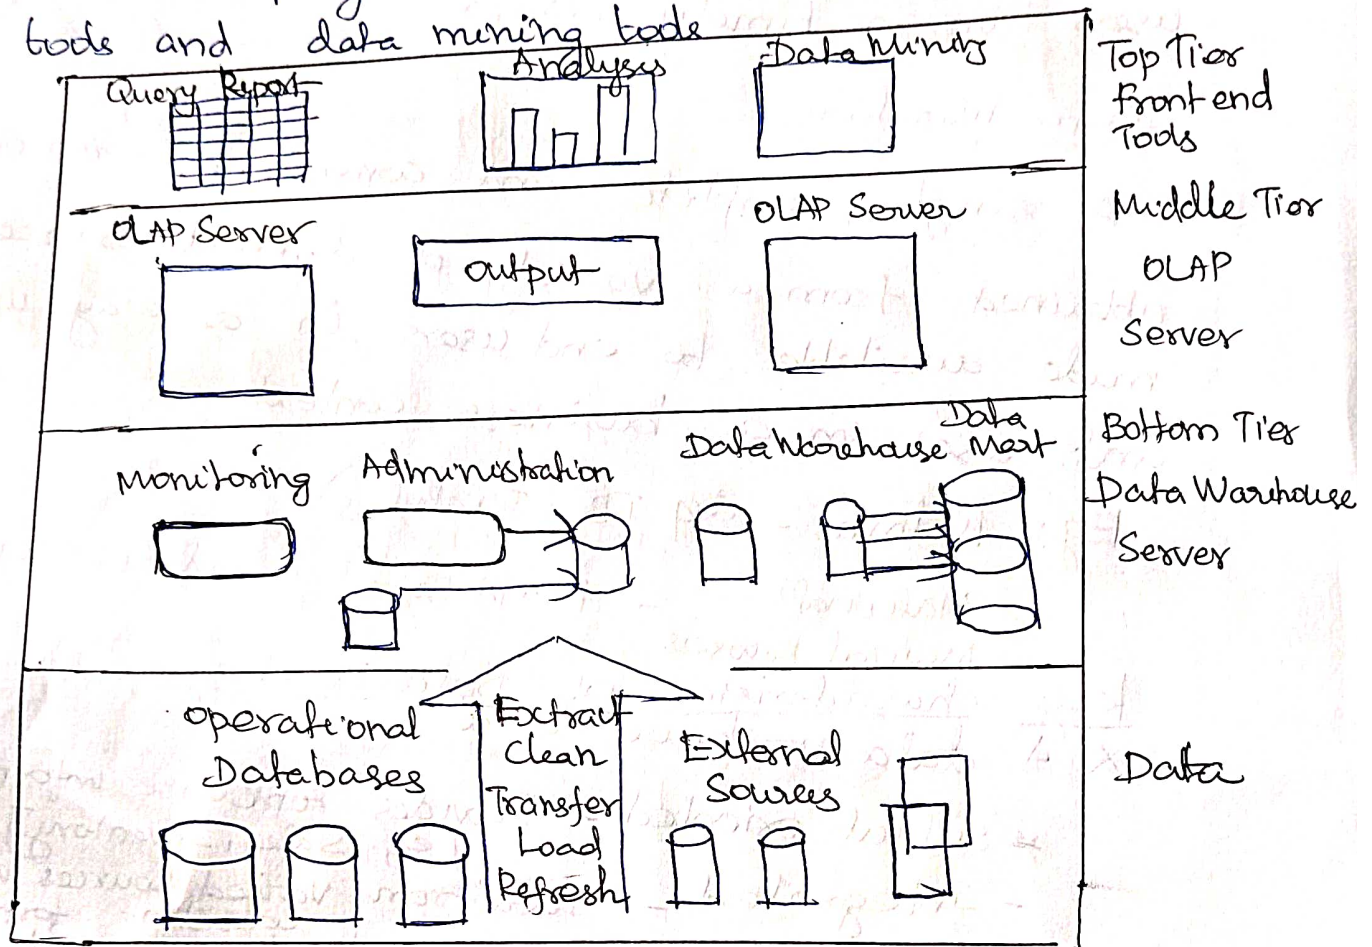 tools and data mining tools
Query Report
Analysis
Data Mining
Top Tier
Front end
Tools
OLAP Server
Output
OLAP Server
Middle Tier
OLAP
Server
Monitoring
Administration
Data Warehouse
Data
Mart
Bottom Tier
Data Warehouse
Server
Operational
Databases
Extract
Clean
Transfer
Load
Refresh
External
Sources
Data